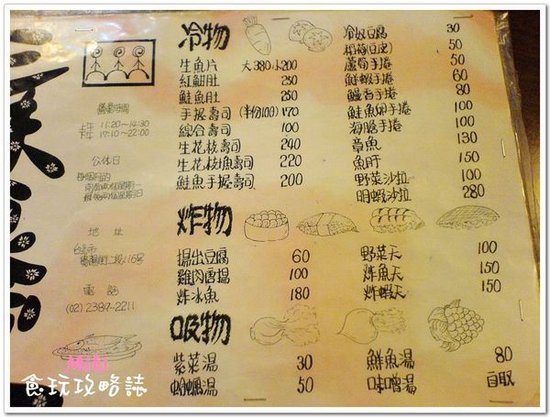 冷物
生魚片 大380小200
紅魽肚 250
鮭魚肚 250
手握壽司 (半份100) 170
綜合壽司 100
生花枝壽司 240
生花枝魚壽司 220
鮭魚手握壽司 200
冷奴豆腐 30
稻荷(豆皮) 50
蘆筍手捲 50
鮮蝦手捲 60
鰻香手捲 80
鮭魚卵手捲 100
海膽手捲 100
章魚 130
魚肝 150
野菜沙拉 100
明蝦沙拉 280
營業時間
上午 11:20~14:30
下午 17:10~22:00
公休日
地址
台北市
二段116号
電話
(02) 2387-2211
炸物
揚出豆腐 60
雞肉唐揚 100
炸冰魚 180
野菜天 100
炸魚天 150
炸蝦天 150
吸物
紫菜湯 30
蛤蠣湯 50
鮮魚湯 80
味噌湯 自取
Mimi
食玩攻略誌